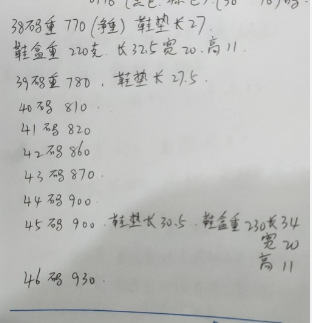 38码重 770 (净重) 鞋垫长27.
鞋盒重 220克. 长32.5宽20.高11
39码重 780, 鞋垫长27.5.
40码 810.
41码 820
42码 860
43码 870.
44码 900.
45码 900. 鞋垫长30.5. 鞋盒重230长34
宽20
高11
46码 930.